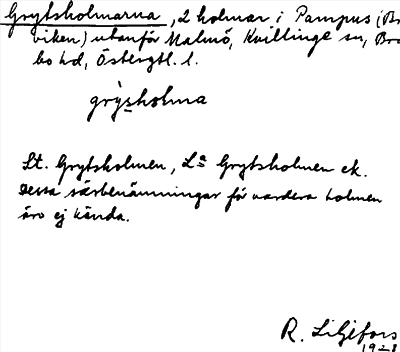 Grytsholmarna, 2 holmar i Pampus (Br
viken) utanför Malmö, Kvillinge sn, Brå
bo hd, Östergtl. l.
grỳsholma
St. Grytsholmen, La Grytsholmen ek.
Dessa särbenämningar för vardera holmen
äro ej kända.
R. Liljefors